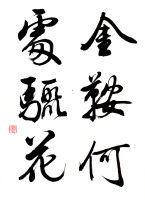 金鞍何
處驪花